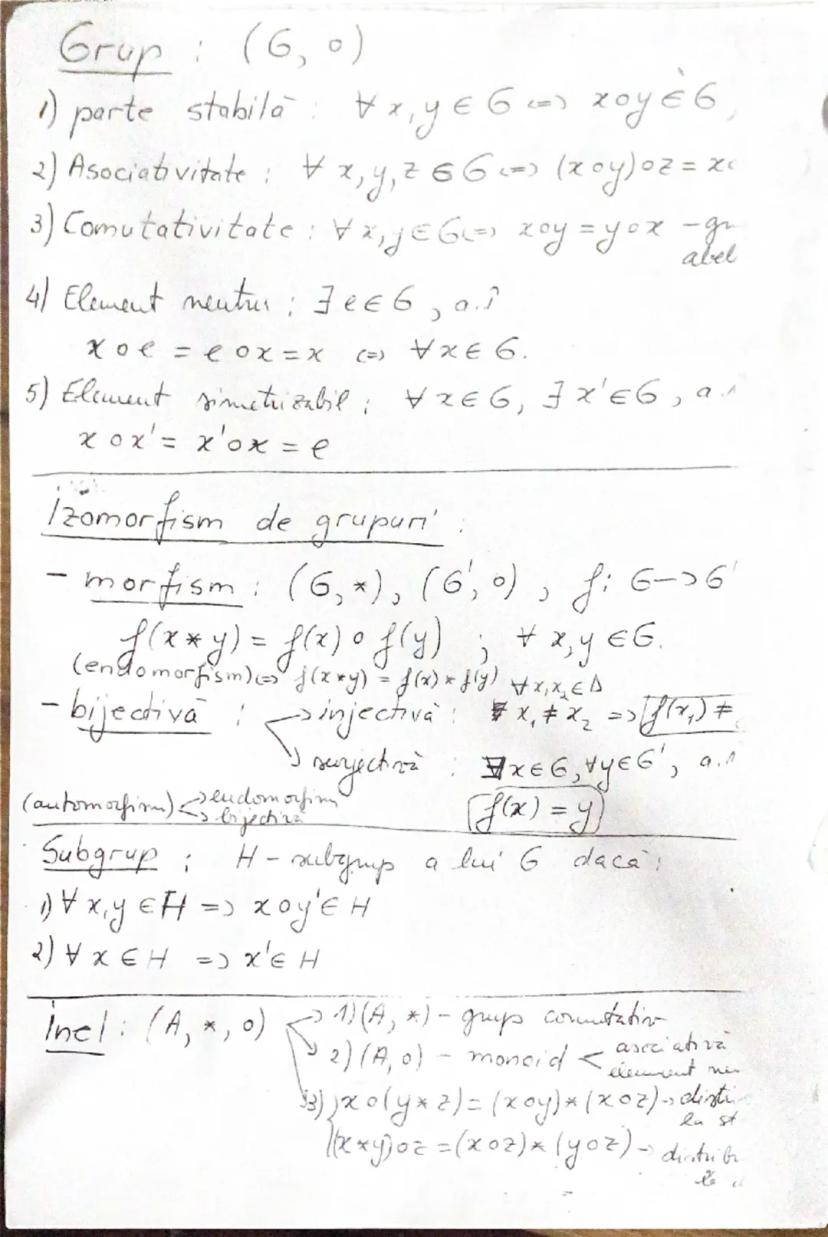 Grup : (G, o)
1) parte stabilă : ∀ x,y ∈ G <=> xoy ∈ G,
2) Asociativitate : ∀ x,y,z ∈ G <=> (xoy)oz = x
3) Comutativitate : ∀ x,y ∈ G <=> xoy = yox - gr
abel
4) Element neutru : ∃ e ∈ G, a.î
xoe = eox = x <=> ∀x ∈ G.
5) Element simetrizabil : ∀ x ∈ G, ∃ x' ∈ G, a.î
xox' = x'ox = e
Izomorfism de grupuri :
- morfism : (G, *), (G', o), f: G -> G'
f(x*y) = f(x) o f(y) ; ∀ x,y ∈ G.
(endomorfism) <=> f(x*y) = f(x) * f(y) ∀x,x₂ ∈ Δ
- bijectivă : -> injectivă : x₁ ≠ x₂ => f(x₁) ≠
-> surjectivă : ∃x ∈ G, ∀y ∈ G', a.î
(automorfism) -> endomorfism
-> bijectivă f(x) = y
Subgrup : H - subgrup a lui G dacă :
1) ∀ x,y ∈ H => xoy' ∈ H
2) ∀ x ∈ H => x' ∈ H
Inel : (A, *, o) -> 1) (A, *) - grup comutativ
-> 2) (A, o) - monoid < asociativă
element ne
3) xo(y*z) = (xoy)*(xoz) -> distri
la st
(x*y)oz = (xoz)*(yoz) - distrib
la